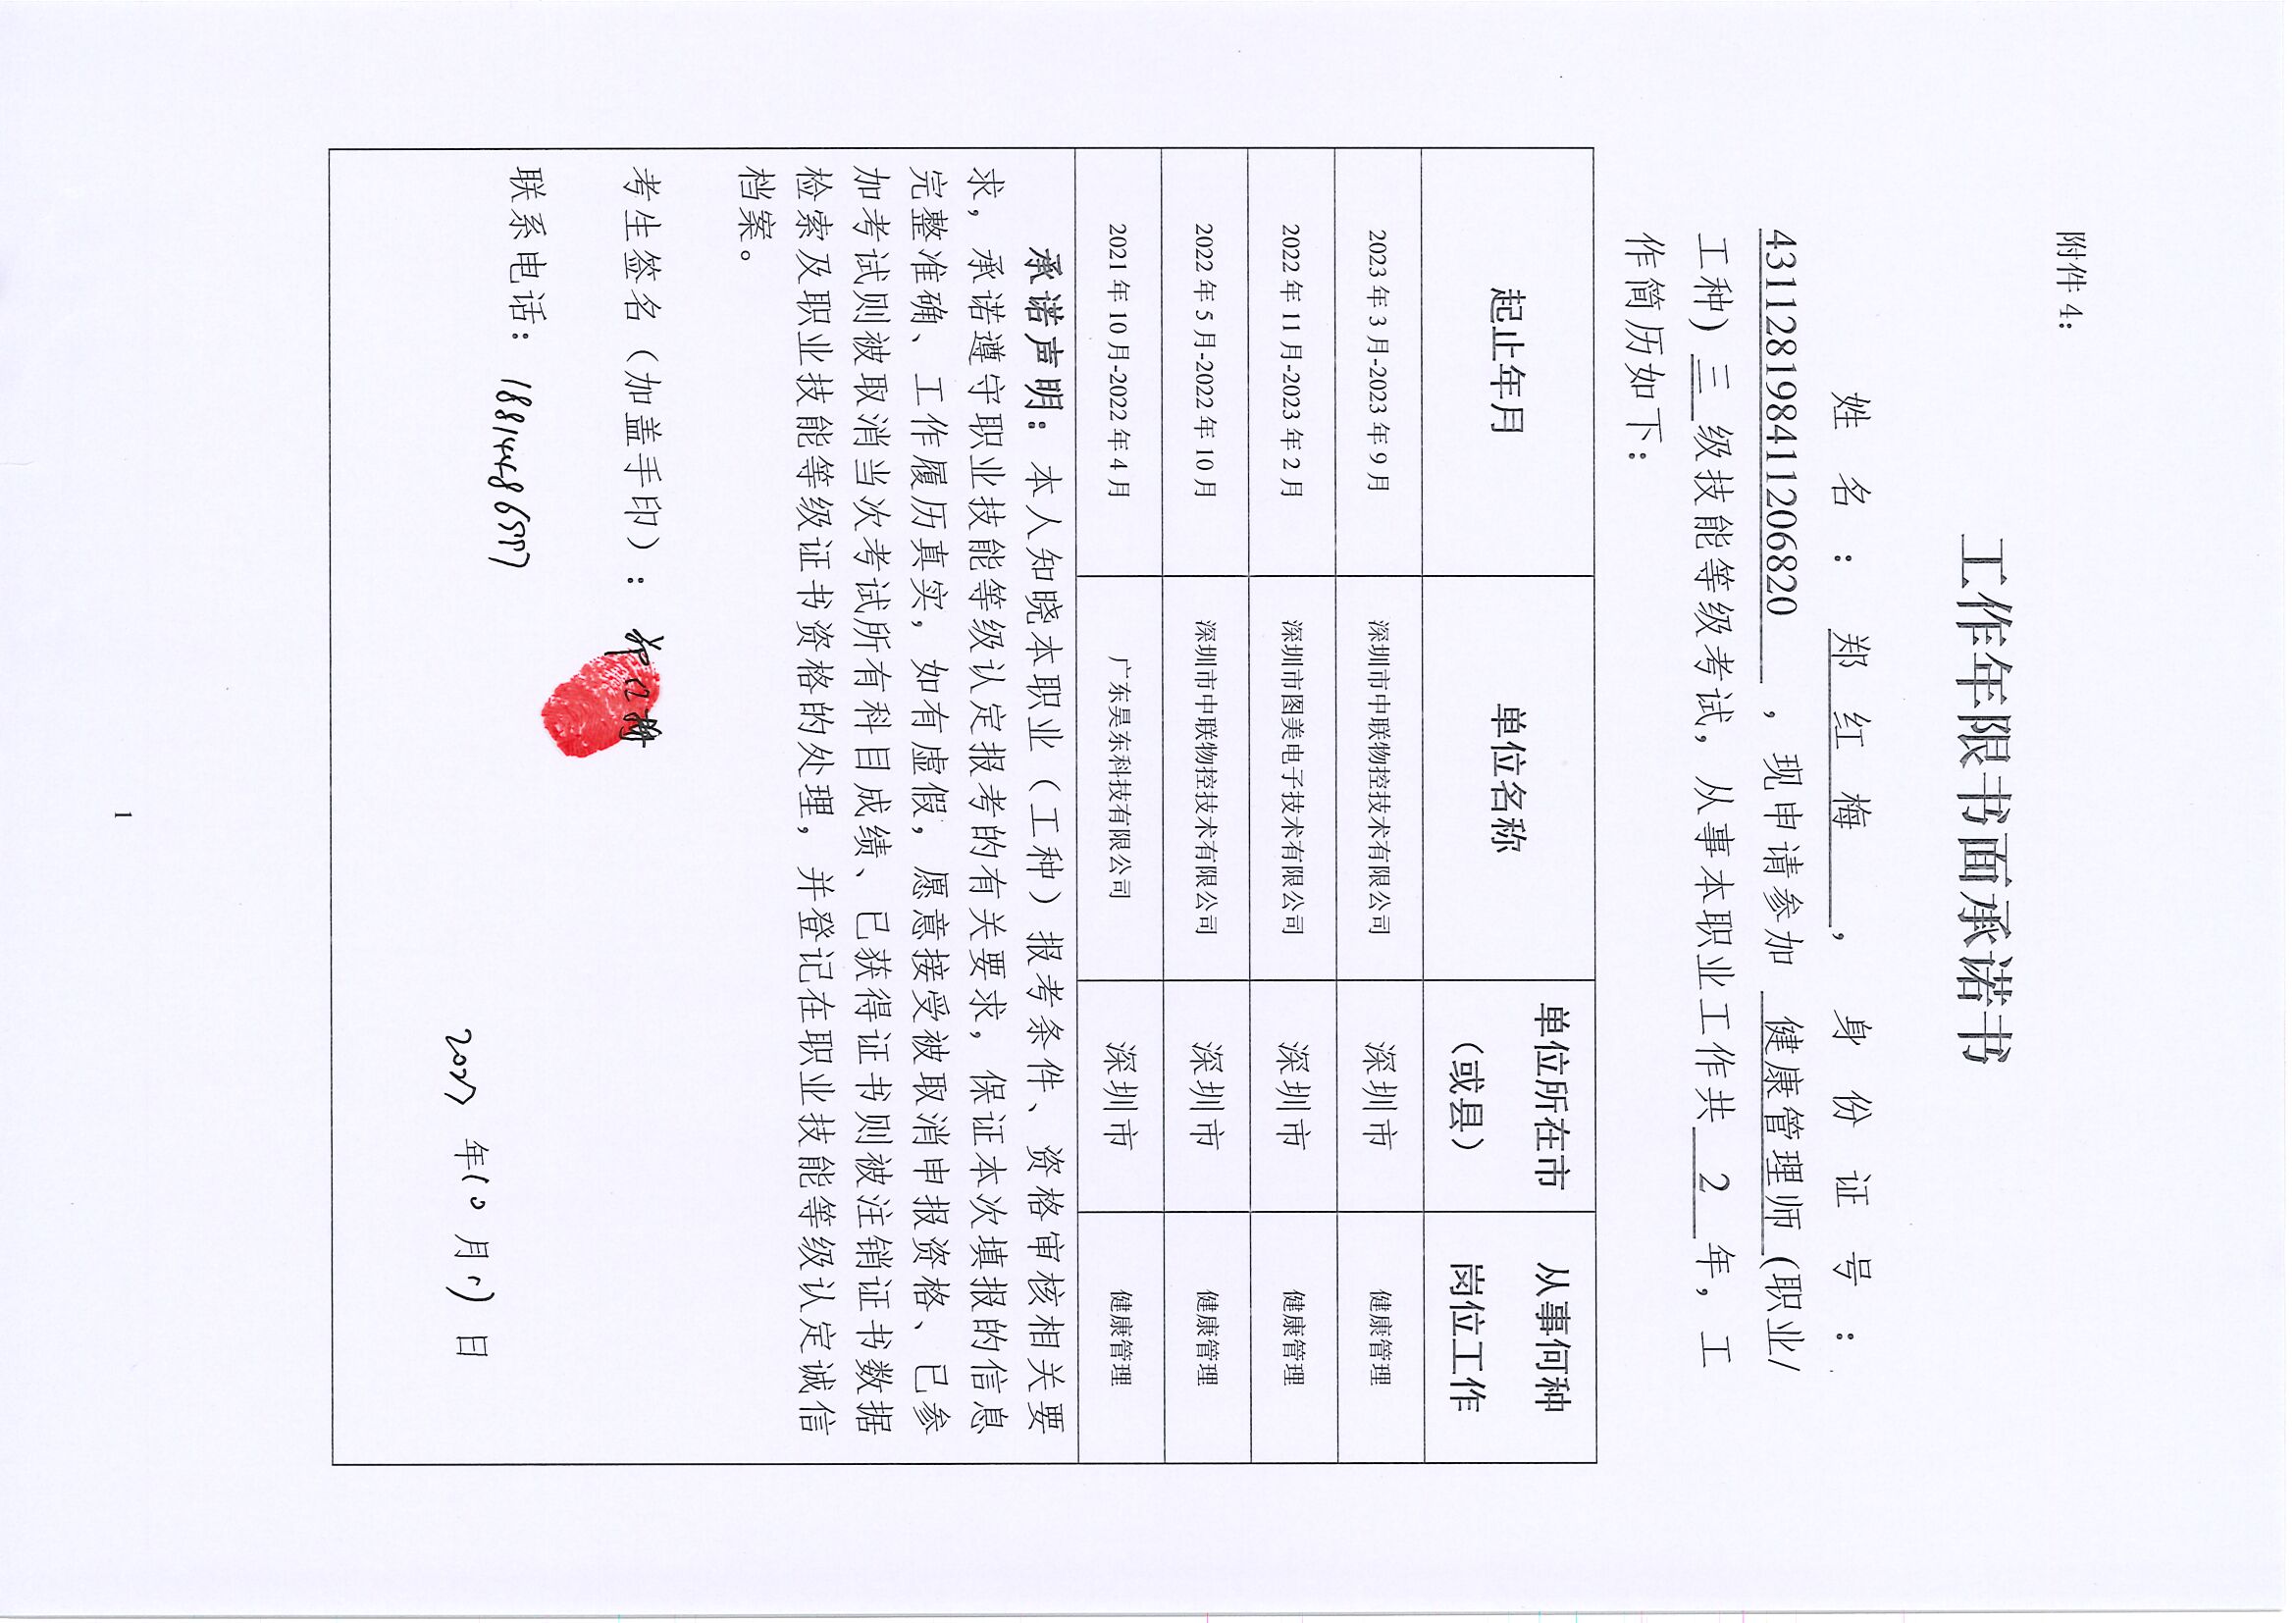 附件 4：
工作年限书面承诺书
姓名：郑红梅，身份证号：
431128198411206820，现申请参加 健康管理师 (职业/
工种) 三 级技能等级考试，从事本职业工作共 2 年，工
作简历如下：
起止年月 单位名称 单位所在市（或县） 从事何种岗位工作
2023 年 3 月-2023 年 9 月 深圳市中联物控技术有限公司 深圳市 健康管理
2022 年 11 月-2023 年 2 月 深圳市图美电子技术有限公司 深圳市 健康管理
2022 年 5 月-2022 年 10 月 深圳市中联物控技术有限公司 深圳市 健康管理
2021 年 10 月-2022 年 4 月 广东昊东科技有限公司 深圳市 健康管理
承诺声明：本人知晓本职业（工种）报考条件、资格审核相关要
求，承诺遵守职业技能等级认定报考的有关要求，保证本次填报的信息
完整准确、工作履历真实，如有虚假，愿意接受被取消申报资格、已参
加考试则被取消当次考试所有科目成绩、已获得证书则被注销证书数据
检索及职业技能等级证书资格的处理，并登记在职业技能等级认定诚信
档案。
考生签名（加盖手印）：
联系电话：
年 10 月 日
1